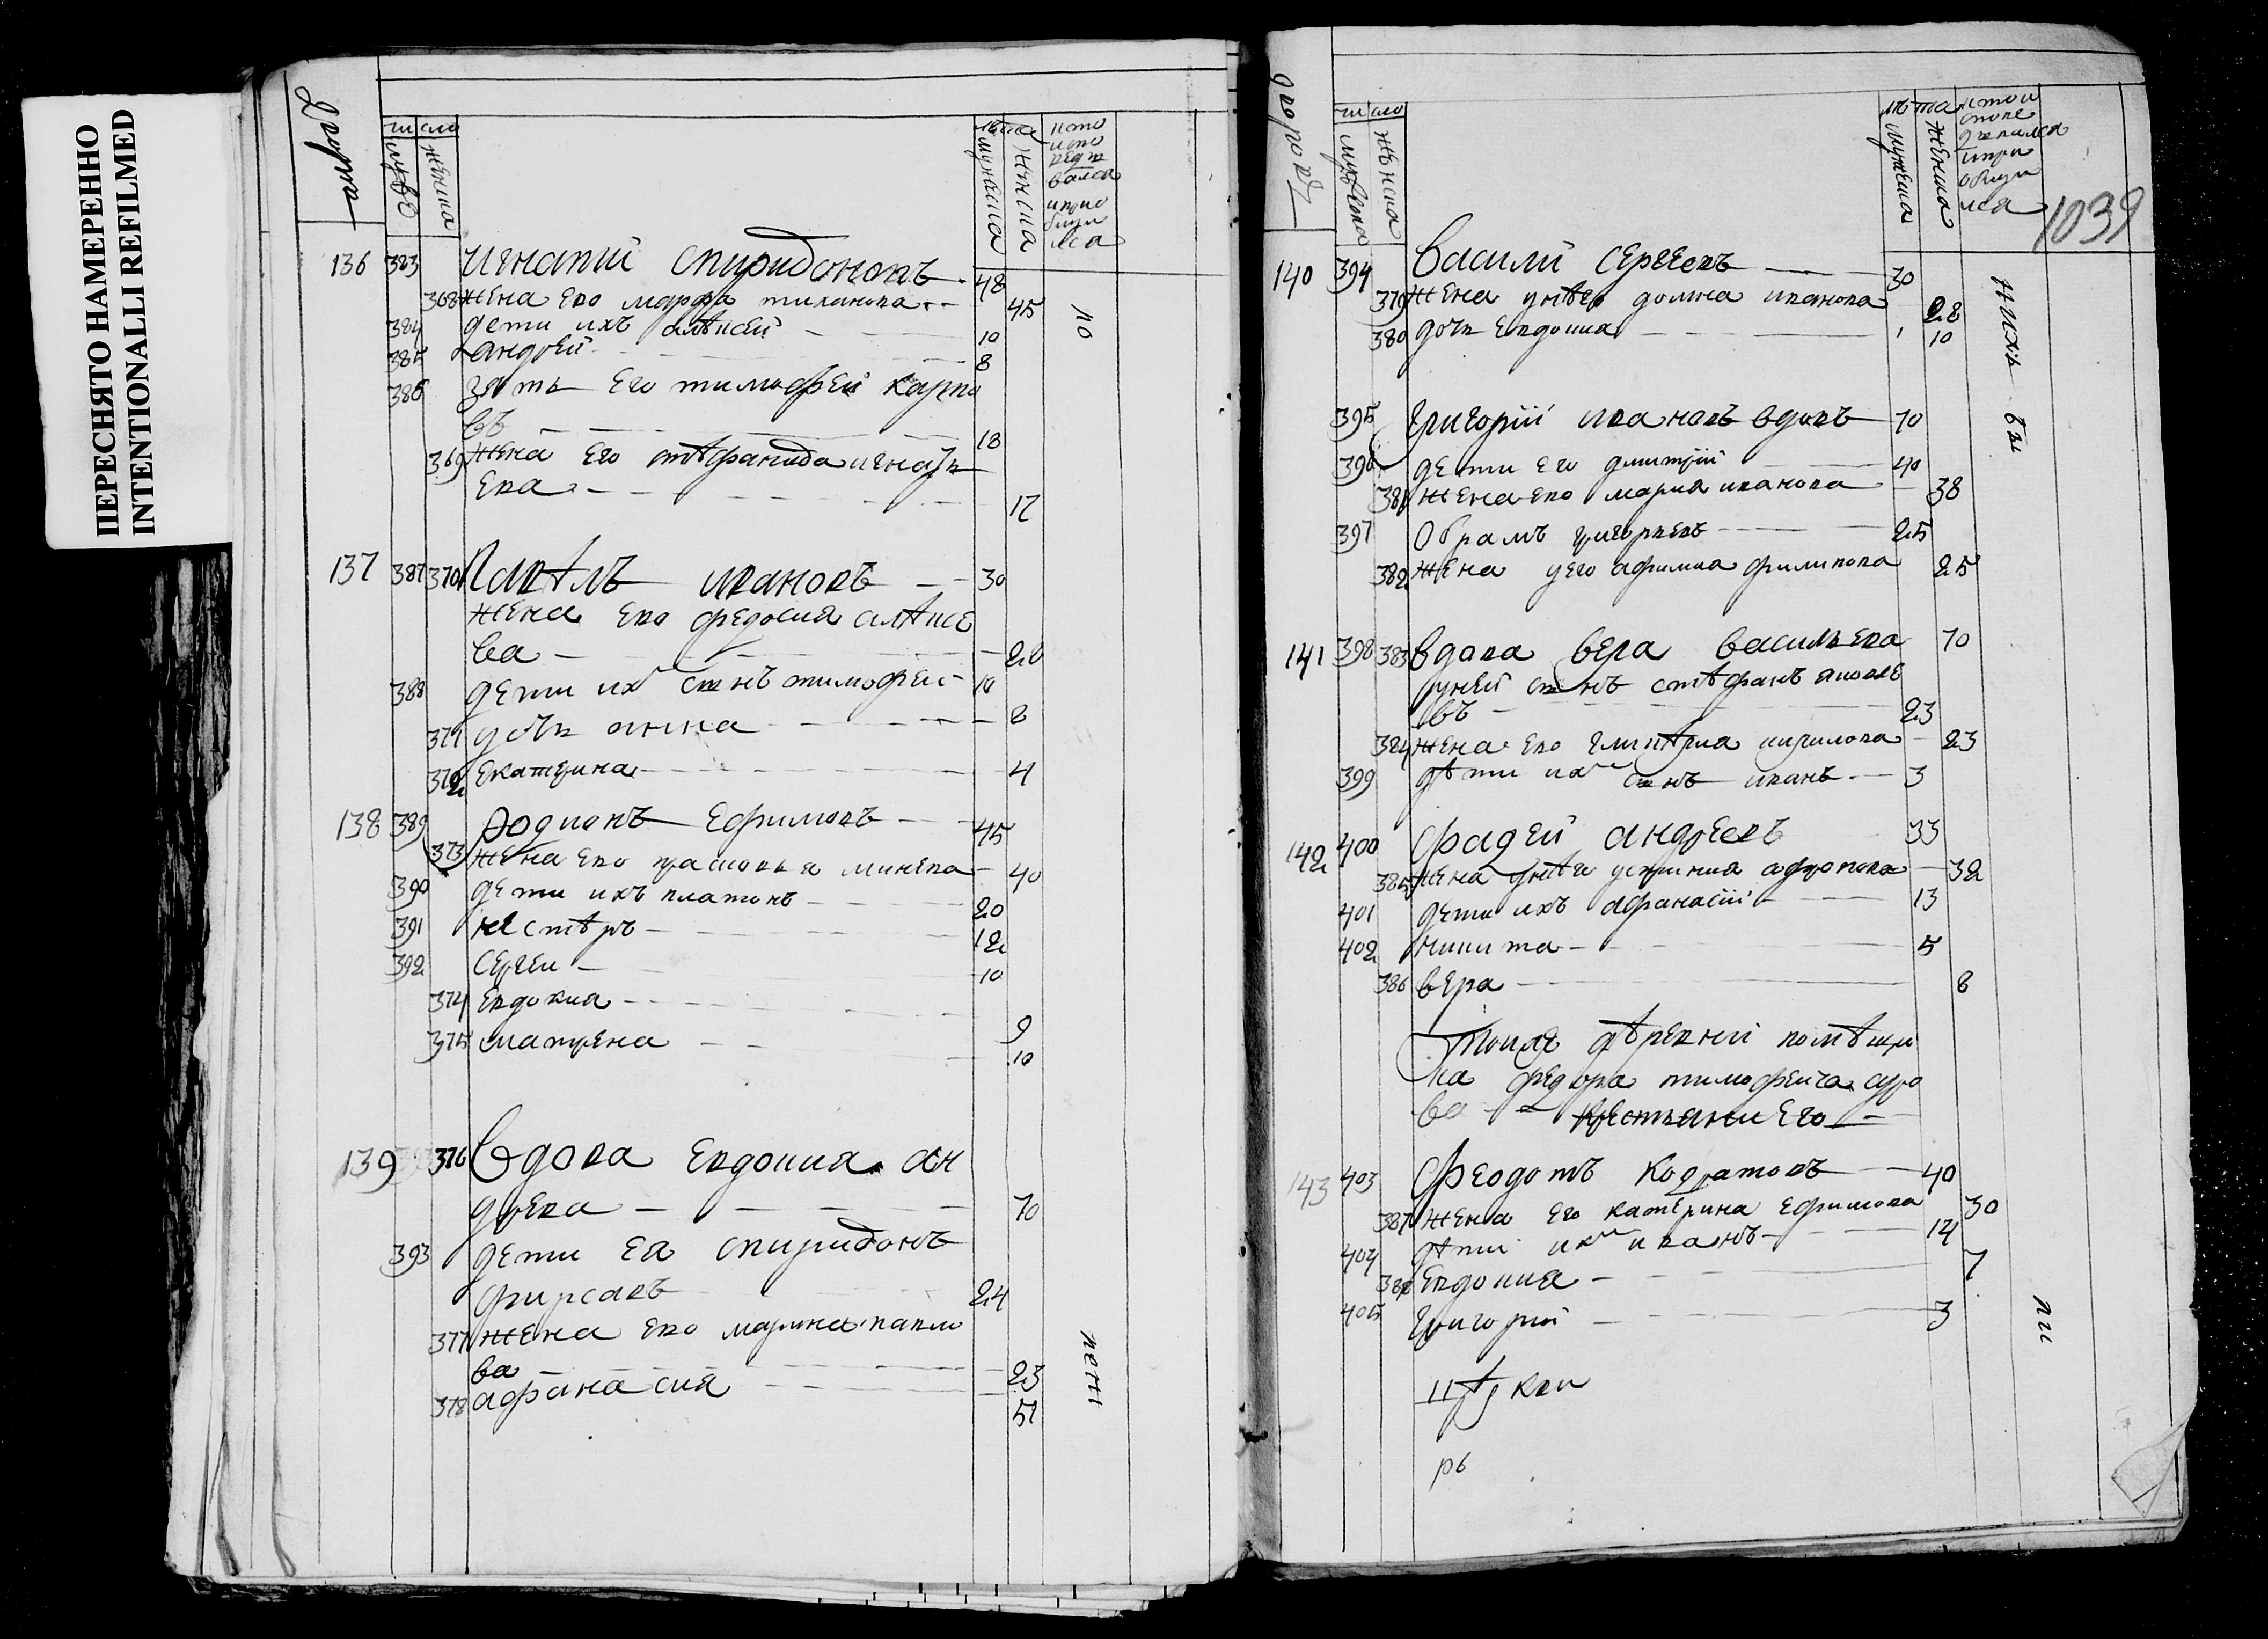 ПЕРЕСНЯТО НАМЕРЕННО
INTENTIONALLI REFILMED
число
мужеска
женска
лѣта
мужеска
женска
136 383 игнатий спиридоновъ 48
368 жена его марфа 45
384 дети ихъ алѣксей 10
385 андрей 8
386 зять его тимофей карпо
въ 18
369 жена его стѣфанида игнатъ
ева 17
137 387 370 Павѣлъ ивановъ 30
жена его федосия алѣксе
ва 28
388 дети ихъ сынъ тимофей 10
371 дочь анна 8
372 екатерина 4
138 389 родионъ ефимовъ 45
373 жена его прасковья минева 40
390 дети ихъ платонъ 20
391 нестѣръ 12
392 сергеи 10
374 евдокия 9
375 матрена 10
139 376 вдова евдокия ан
древа 70
393 дети ея спиридонъ
фирсавъ 24
377 жена его марина павло
ва 23
378 афанасия 51
по
пени
1039
число
мужеска
женска
лѣта
мужеска
женска
140 394 Василий Сергеевъ 30
379 жена унѣго домна иванова 28
380 дочь евдокия 10
395 григорий ивановъ вдовъ 70
396 дети его дмитрий 40
381 жена его мария иванова 38
397 обрамъ григорьевъ 25
382 жена уего афимиа филипова 25
141 398 383 вдова вера васильева 70
унеи сынъ стѣфанъ яковле
въ 23
384 жена его кирилова 23
399 дѣти ихъ сынъ иванъ 3
142 400 Фадей андреевъ 33
385 жена унѣго устиния 32
401 дети ихъ афанасий 13
402 никита 5
386 вера 8
тоияже дѣревни помѣщи
ка федора тимофеича
ва крестьяни его
143 403 Феодотъ кодратовъ 40
387 жена его катерина ефимова 30
404 дѣти ихъ иванъ 14
388 евдокия 7
405 григорий 3
цѣркви
рв